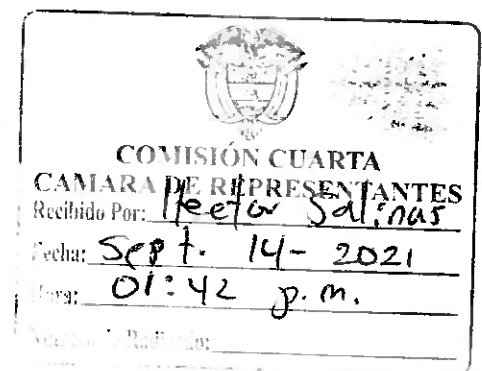 COMISIÓN CUARTA
CAMARA DE REPRESENTANTES
Recibido Por: Hector Salinas
Fecha: Sept. 14- 2021
Hora: 01:42 p.m.